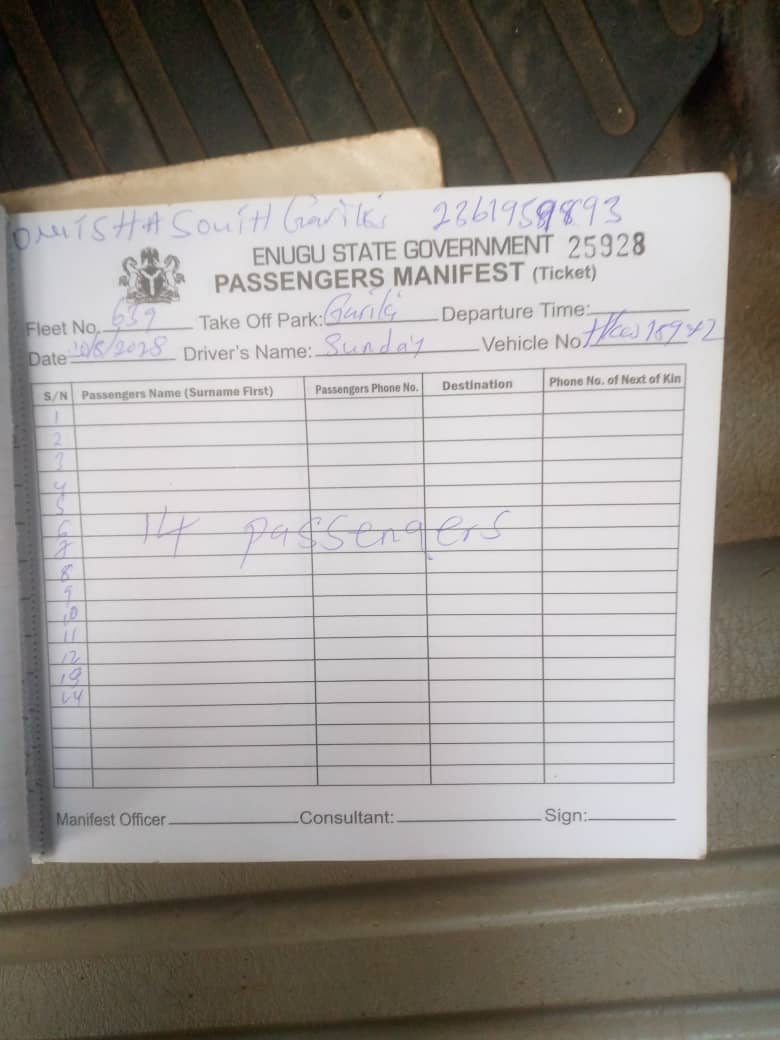 ONITSHA SOUTH Gariki
ENUGU STATE GOVERNMENT 25928
PASSENGERS MANIFEST (Ticket)
Fleet No. 639 Take Off Park: Gariki Departure Time:
Date Driver's Name: Sunday Vehicle No
S/N Passengers Name (Surname First) Passengers Phone No. Destination Phone No. of Next of Kin
1
2
3
4
5
6
7
8
9
10
11
12
13
14
14 passengers
Manifest Officer Consultant: Sign: